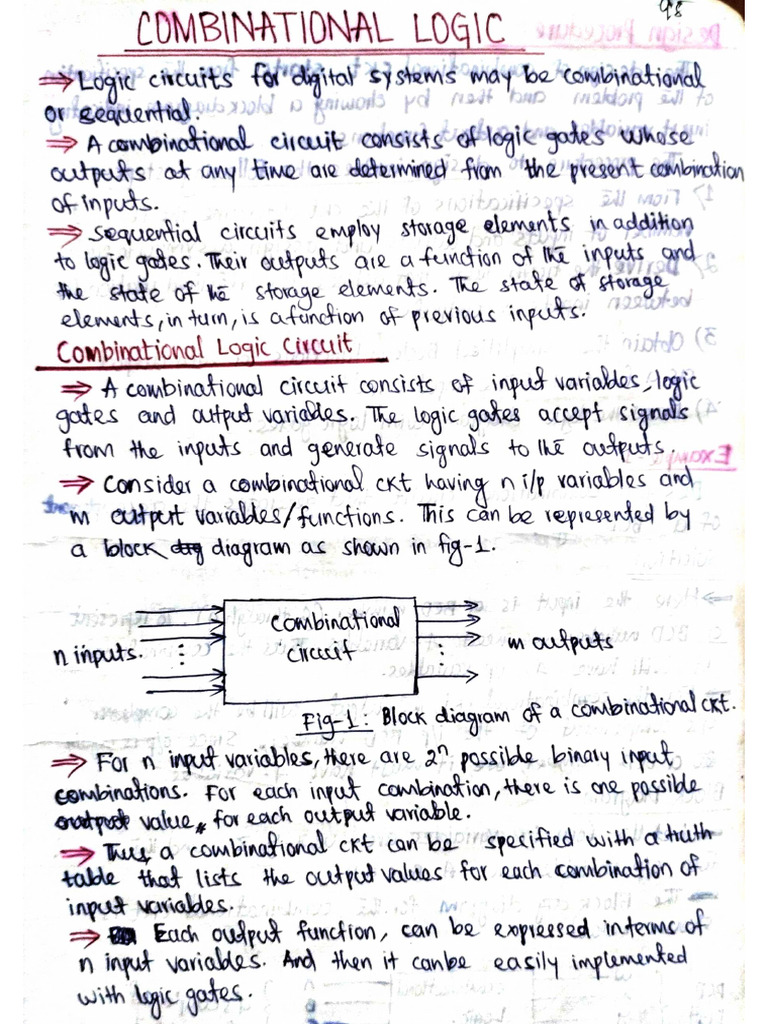 98
COMBINATIONAL LOGIC
⇒ Logic circuits for digital systems may be combinational
or sequential.
⇒ A combinational circuit consists of logic gates whose
outputs at any time are determined from the present combination
of inputs.
⇒ Sequential circuits employ storage elements in addition
to logic gates. Their outputs are a function of the inputs and
the state of the storage elements. The state of storage
elements, in turn, is a function of previous inputs.
Combinational Logic Circuit
⇒ A combinational circuit consists of input variables, logic
gates and output variables. The logic gates accept signals
from the inputs and generate signals to the outputs.
⇒ Consider a combinational ckt having n i/p variables and
m output variables/functions. This can be represented by
a block diagram as shown in fig-1.
combinational
circuit
n inputs.
m outputs
Fig-1: Block diagram of a combinational ckt.
⇒ For n input variables, there are 2ⁿ possible binary input
combinations. For each input combination, there is one possible
output value, for each output variable.
⇒ Thus a combinational ckt can be specified with a truth
table that lists the output values for each combination of
input variables.
⇒ Each output function, can be expressed in terms of
n input variables. And then it can be easily implemented
with logic gates.